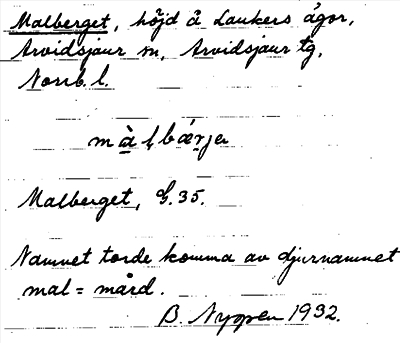 Malberget, höjd å Laukers ägor,
Arvidsjaur sn, Arvidsjaur tg,
Norrb. l.
màlbǽrjer
Malberget, G.35.
Namnet torde komma av djurnamnet
mal = mård.
B. Nyppen 1932.